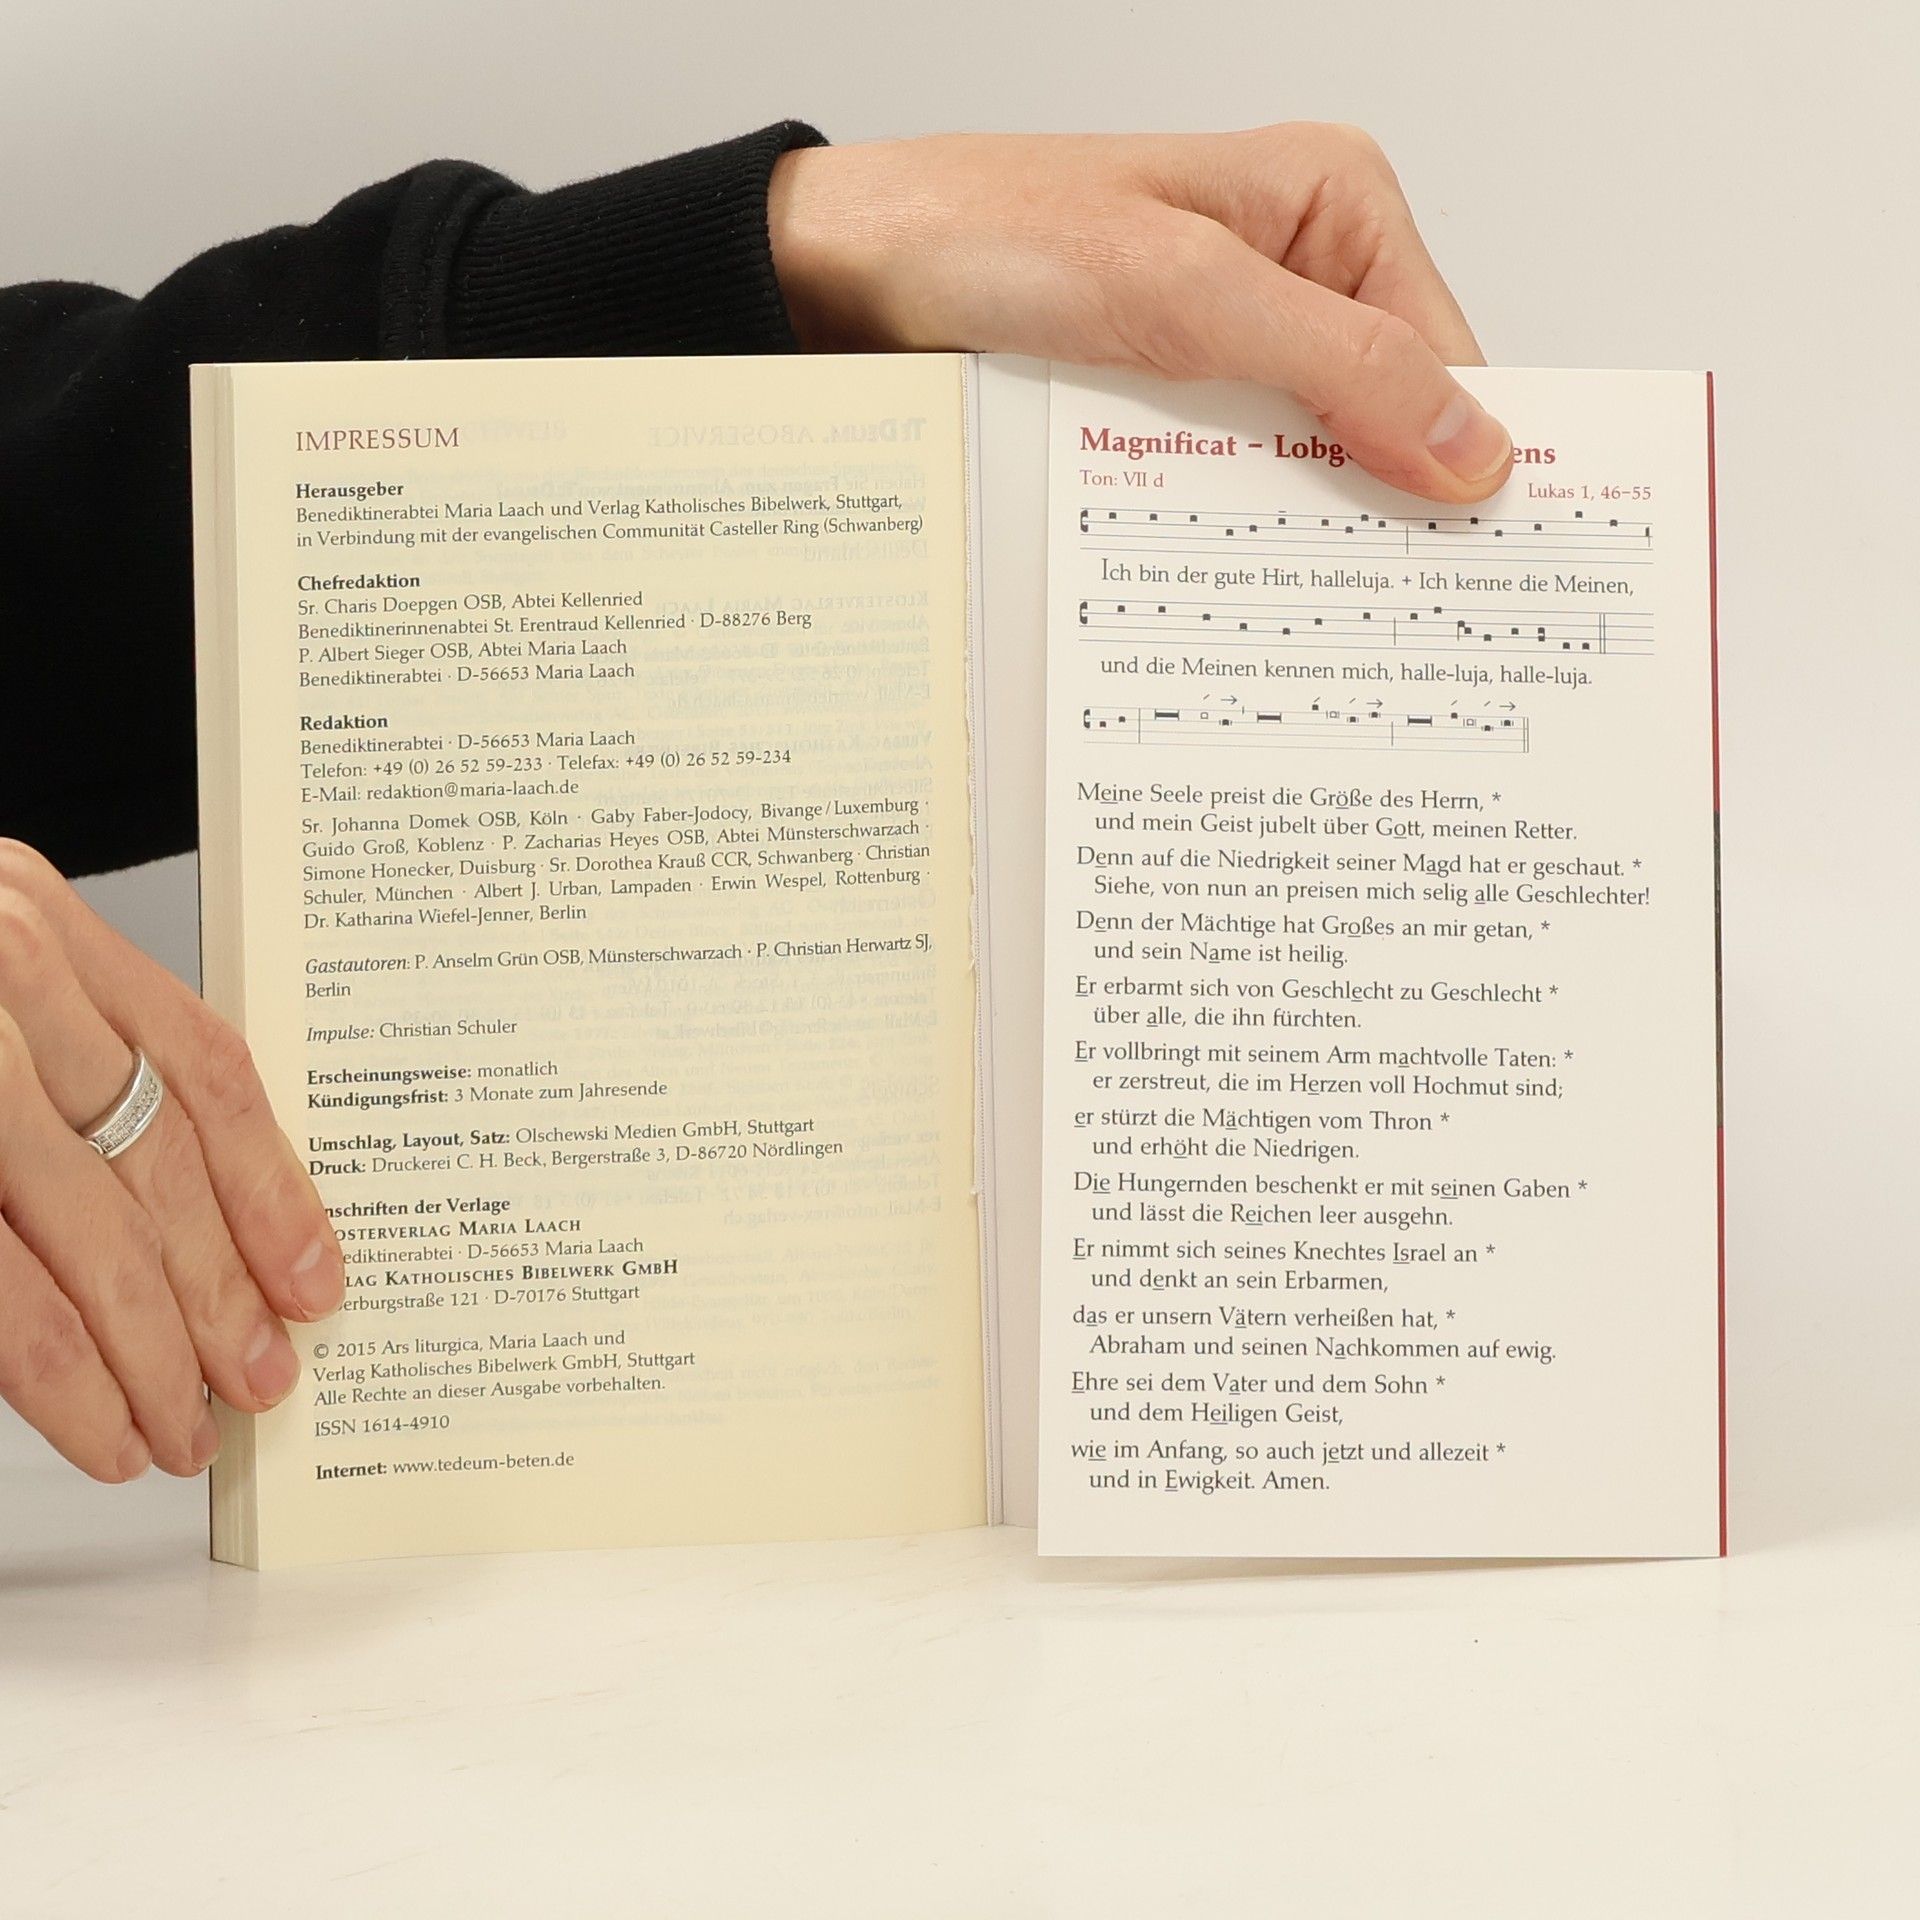 IMPRESSUM
Herausgeber
Benediktinerabtei Maria Laach und Verlag Katholisches Bibelwerk, Stuttgart,
in Verbindung mit der evangelischen Communität Casteller Ring (Schwanberg)
Chefredaktion
Sr. Charis Doepgen OSB, Abtei Kellenried
Benediktinerinnenabtei St. Erentraud Kellenried · D-88276 Berg
P. Albert Sieger OSB, Abtei Maria Laach
Benediktinerabtei · D-56653 Maria Laach
Redaktion
Benediktinerabtei · D-56653 Maria Laach
Telefon: +49 (0) 26 52 59-233 · Telefax: +49 (0) 26 52 59-234
E-Mail: redaktion@maria-laach.de
Sr. Johanna Domek OSB, Köln · Gaby Faber-Jodocy, Bivange/Luxemburg ·
Guido Groß, Koblenz · P. Zacharias Heyes OSB, Abtei Münsterschwarzach ·
Simone Honecker, Duisburg · Sr. Dorothea Krauß CCR, Schwanberg · Christian
Schuler, München · Albert J. Urban, Lampaden · Erwin Wespel, Rottenburg ·
Dr. Katharina Wiefel-Jenner, Berlin
Gastautoren: P. Anselm Grün OSB, Münsterschwarzach · P. Christian Herwartz SJ,
Berlin
Impulse: Christian Schuler
Erscheinungsweise: monatlich
Kündigungsfrist: 3 Monate zum Jahresende
Umschlag, Layout, Satz: Olschewski Medien GmbH, Stuttgart
Druck: Druckerei C. H. Beck, Bergerstraße 3, D-86720 Nördlingen
nschriften der Verlage
OSTERVERLAG MARIA LAACH
ediktinerabtei · D-56653 Maria Laach
LAG KATHOLISCHES BIBELWERK GMBH
erburgstraße 121 · D-70176 Stuttgart
© 2015 Ars liturgica, Maria Laach und
Verlag Katholisches Bibelwerk GmbH, Stuttgart
Alle Rechte an dieser Ausgabe vorbehalten.
ISSN 1614-4910
Internet: www.tedeum-beten.de
Magnificat – Lobg ens
Ton: VII d
Lukas 1, 46–55
Ich bin der gute Hirt, halleluja. + Ich kenne die Meinen,
und die Meinen kennen mich, halle-luja, halle-luja.
Meine Seele preist die Größe des Herrn, *
und mein Geist jubelt über Gott, meinen Retter.
Denn auf die Niedrigkeit seiner Magd hat er geschaut. *
Siehe, von nun an preisen mich selig alle Geschlechter!
Denn der Mächtige hat Großes an mir getan, *
und sein Name ist heilig.
Er erbarmt sich von Geschlecht zu Geschlecht *
über alle, die ihn fürchten.
Er vollbringt mit seinem Arm machtvolle Taten: *
er zerstreut, die im Herzen voll Hochmut sind;
er stürzt die Mächtigen vom Thron *
und erhöht die Niedrigen.
Die Hungernden beschenkt er mit seinen Gaben *
und lässt die Reichen leer ausgehn.
Er nimmt sich seines Knechtes Israel an *
und denkt an sein Erbarmen,
das er unsern Vätern verheißen hat, *
Abraham und seinen Nachkommen auf ewig.
Ehre sei dem Vater und dem Sohn *
und dem Heiligen Geist,
wie im Anfang, so auch jetzt und allezeit *
und in Ewigkeit. Amen.